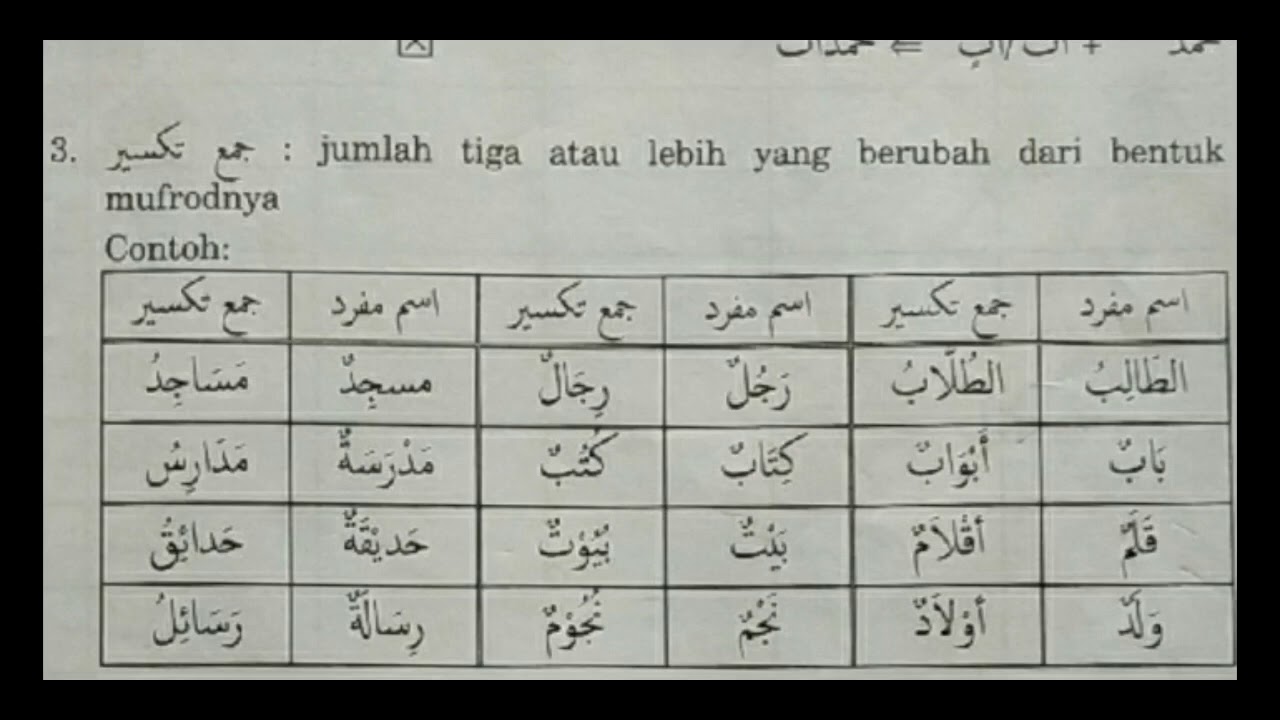 3. جمع تكسير : jumlah tiga atau lebih yang berubah dari bentuk
mufrodnya
Contoh:
اسم مفرد جمع تكسير اسم مفرد جمع تكسير اسم مفرد جمع تكسير
الطَالِبُ الطُلَّابُ رَجُلٌ رِجَالٌ مسجِدٌ مَسَاجِدُ
بَابٌ أَبْوَابٌ كِتَابٌ كُتُبٌ مَدْرَسَةٌ مَدَارِسُ
قَلَمٌ أقْلاَمٌ بَيْتٌ بُيُوْتٌ حَديْقَةٌ حَدائِقُ
وَلَدٌ أوْلاَدٌ نَجْمٌ نُجُوْمٌ رِسَالَةٌ رَسَائِلُ